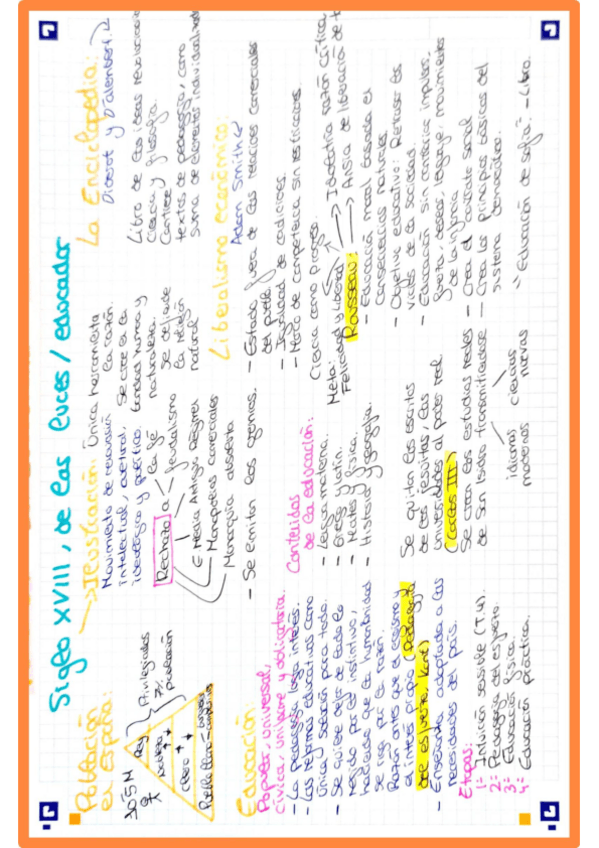 Siglo XVIII, de las luces / educador
Población
en España:
10'5 M
Rey
Nobleza
Clero
Privilegiados
7% población
→Ilustración: Única herramienta
la razón.
Movimiento de renovación
intelectual, cultural,
ideológico y político.
Se cree en la
bondad humana y
naturaleza.
Rechazo a
la fe
feudalismo
E. Media Antiguo Régimen
Monopolios comerciales
Monarquía absoluta
Se defiende
la religión
natural
- Se emiten los gremios.
La Enciclopedia:
Diderot y D'alembert
Libro de las ideas revolucionarias
Ciencia y filosofía.
Contiene
textos de pedagogía, como
suma de elementos individuales
Liberalismo económico:
Adam Smith
- Estado fuera de las relaciones comerciales
del pueblo.
- Igualdad de condiciones.
- Marco de competencia sin restricciones.
Educación:
Popular, universal,
cívica, uniforme y obligatoria.
- La pedagogía toma interés.
- Las reformas educativas como
única solución para todo.
- Se quiere dejar de lado lo
regido por el instinto,
haciendo que la humanidad
se rija por la razón.
- Razón antes que el egoísmo y
el interés propio (Pedagogía
del esfuerzo, Kant)
- Enseñanza adaptada a las
necesidades del país.
Etapas:
1= Intuición sensible (T.U).
2= Pedagogía del esfuerzo.
3= Educación física.
4= Educación práctica.
Contenidos
de la educación:
- Lengua materna.
- Griego y latín.
- Mates y física.
- Historia y geografía.
Se quitan los escritos
de los jesuitas, las
universidades al poder real
(Carlos III)
Se crean los estudios reales
de San Isidro transmitiéndose
idiomas
modernos
ciencias
nuevas
Ciencia como progreso
Meta:
Felicidad y Libertad
Idolatría razón crítica
Ansia de liberación de
Rousseau:
- Educación moral basada en
consecuencias naturales.
- Objetivo educativo: Retrasar los
vicios de la sociedad.
- Educación sin contrariar impulsos,
fuerza, deseos, lenguaje, movimientos
de la infancia
- Crea el contrato social
- Crea los principios básicos del
sistema democrático.
"Educación de Sofía" - Libro.